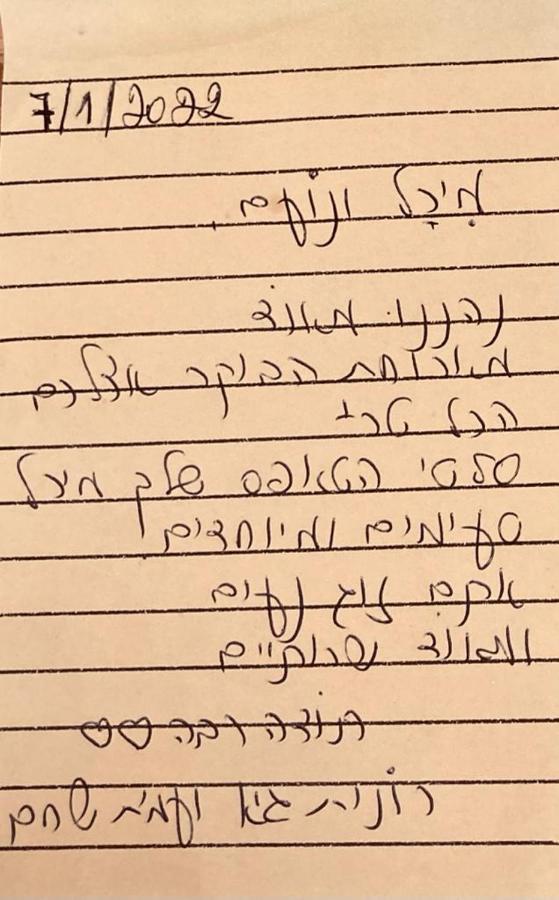 7/1/2022
מיכל ונועם
נהננו מאוד
מארוחת הבוקר אצלכם
הכל טרי
סלטי הטאפס שלך מיכל
טעימים ומיוחדים
אתם זוג נעים
ומאוד שרותיים
תודה רבה ♡♡
רונית גיא ועמית שחם